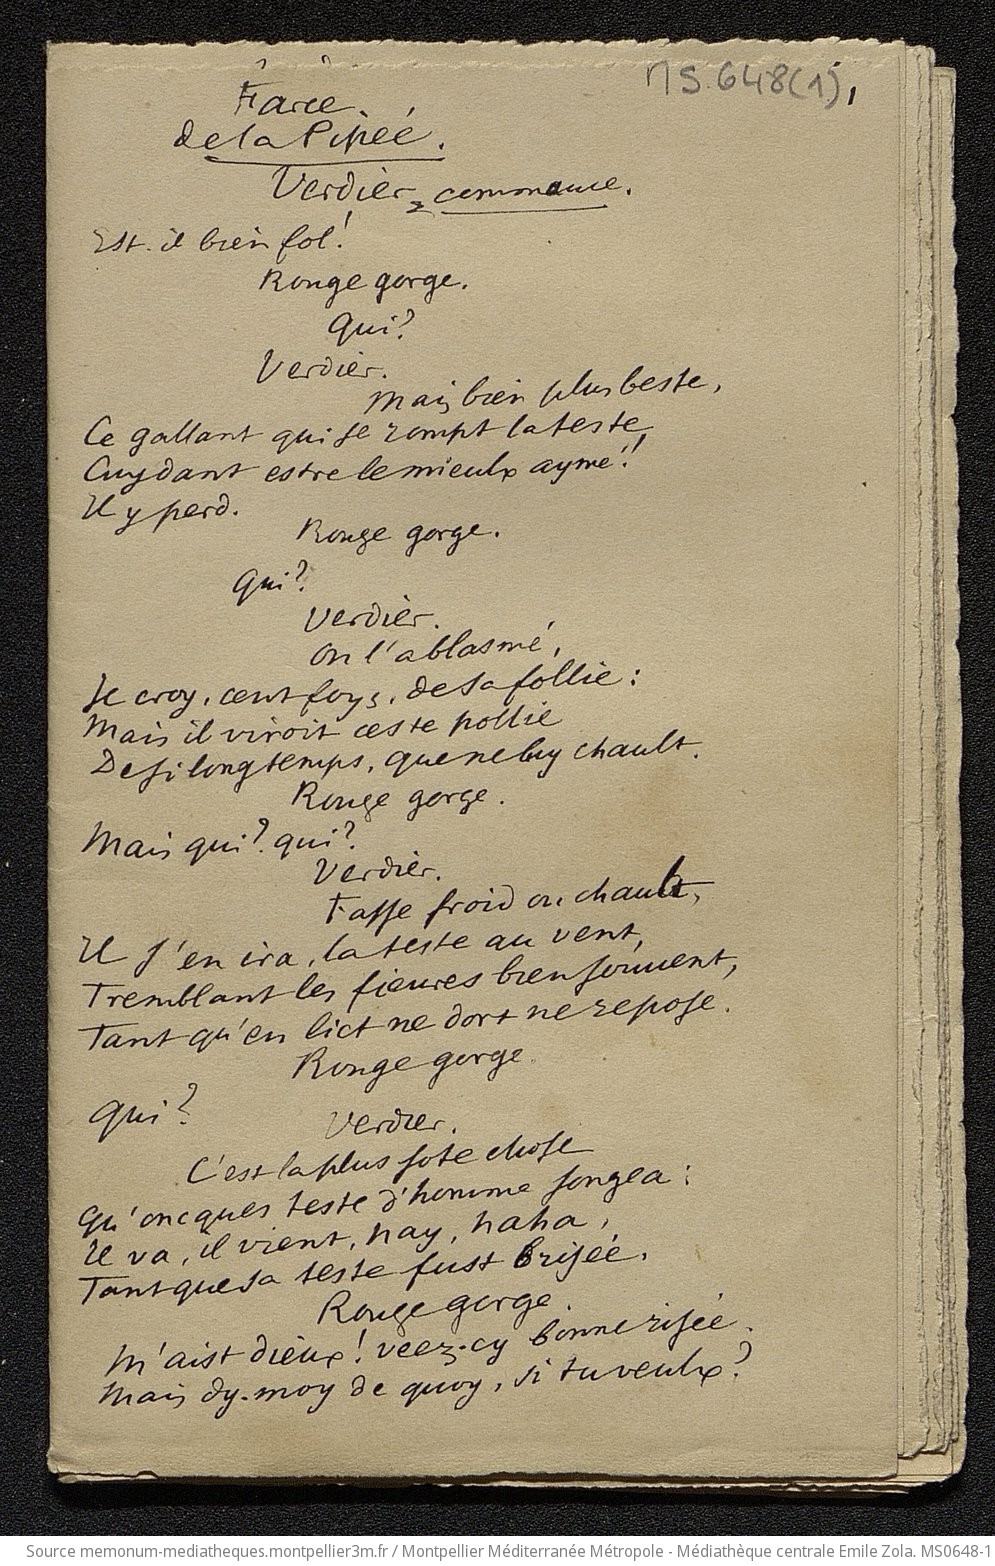 MS.648(1),
Farce
de la Pipée.
Verdier, commence.
Est-il bien fol!
Rouge gorge.
Qui?
Verdier.
Mais bien plus beste,
Ce gallant qui se rompt la teste,
Cuydant estre le mieulx aymé!!
Il y perd.
Rouge gorge.
Qui?
Verdier.
On l'a blasmé,
Je croy, cent foys, de sa follie:
Mais il viroit ceste pollie
De si longtemps, que ne luy chault.
Rouge gorge.
Mais qui? qui?
Verdier.
Fasse froid ou chault,
Il s'en ira, la teste au vent,
Tremblant les fieures bien souuent,
Tant qu'en lict ne dort ne repose.
Rouge gorge
Qui?
Verdier.
C'est la plus sote chose
Qu'oncques teste d'homme songea:
Il va, il vient, hay, haha,
Tant que sa teste fust brisée.
Rouge gorge.
M'aist dieux! veez-cy bonne risée.
Mais dy-moy de quoy, si tu veulx?
Source memonum-mediatheques.montpellier3m.fr / Montpellier Méditerranée Métropole - Médiathèque centrale Emile Zola. MS0648-1